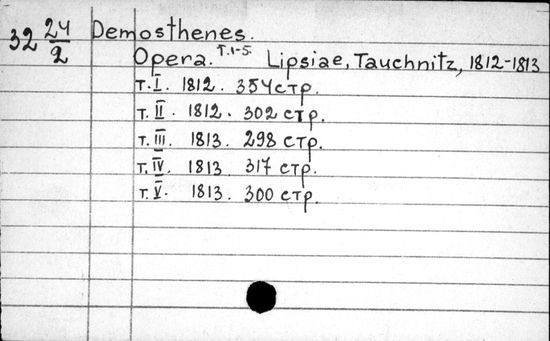 32 24/2 Demosthenes.
Opera. т.1-5. Lipsiae, Tauchnitz, 1812-1813
т. I. 1812. 354 стр.
т. II. 1812. 302 стр.
т. III. 1813. 298 стр.
т. IV. 1813. 317 стр.
т. V. 1813. 300 стр.